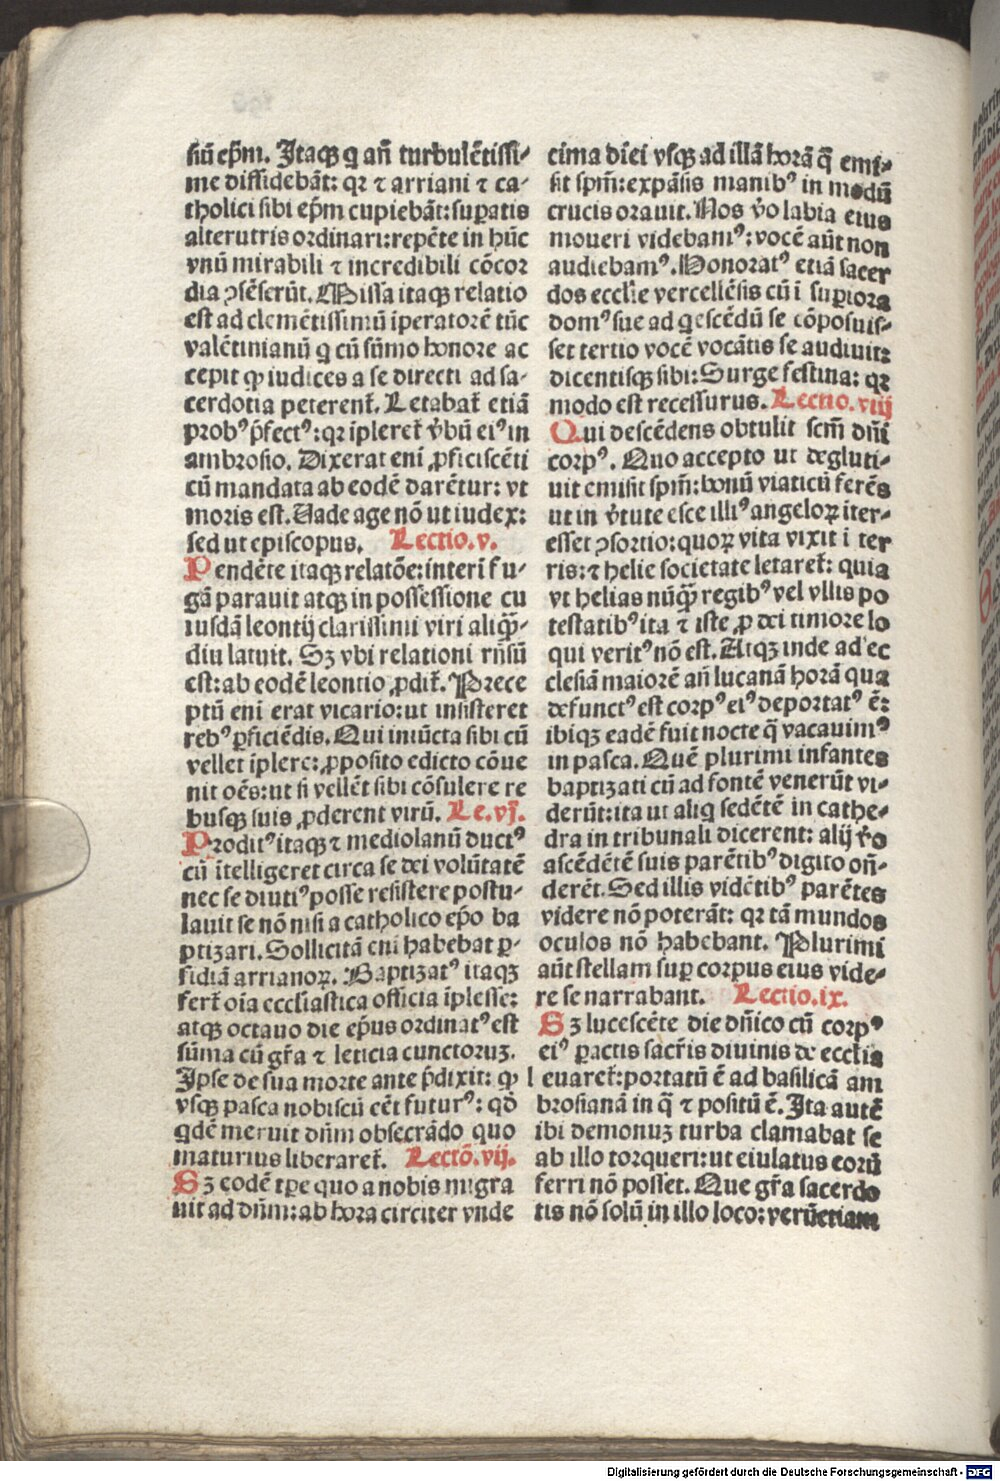 siū ep̄m. Itaqꝫ q an̄ turbulētissi-
me dissidebāt: qꝛ ⁊ arriani ⁊ ca-
tholici sibi ep̄m cupiebāt: suꝑatis
alterutris ordinari: repēte in hūc
vnū mirabili ⁊ incredibili cōcor
dia ꝯsēserūt. Missa itaqꝫ relatio
est ad clemētissimū īperatorē tūc
valētinianū q cū sūmo honore ac
cepit ꝙ iudices a se directi ad sa-
cerdotia peterent̄. Letabat̄ etiā
probꝰ p̄fectꝰ: qꝛ īpleret̄ v̄bū eiꝰ in
ambrosio. Dixerat eni ꝓficiscēti
cū mandata ab eodē darētur: vt
moris est. Uade age nō ut iudex:
sed ut episcopus. Lectio. v.
Pendēte itaqꝫ relatōe: interī fu-
gā parauit atqꝫ in possessione cu
iusdā leontij clarissimi viri aliqꝫ̄-
diu latuit. Sꝫ vbi relationi rn̄sū
est: ab eodē leontio ꝓdit̄. Prece
ptū eni erat vicario: ut insisteret
rebꝰ ꝑficiēdis. Qui iniūcta sibi cū
vellet īplere: ꝓposito edicto cōue
nit oēs: ut si vellēt sibi cōsulere re
busqꝫ suis ꝓderent virū. Le. vj.
Proditꝰ itaqꝫ ⁊ mediolanū ductꝰ
cū ītelligeret circa se dei volūtatē
nec se diutiꝰ posse resistere postu-
lauit se nō nisi a catholico ep̄o ba
ptizari. Sollicitā eni habebat ꝑ-
fidiā arrianoꝝ. Baptizatꝰ itaqꝫ
fert̄ oīa eccl̄iastica officia īplesse:
atqꝫ octauo die ep̄us ordinatꝰ est
sūma cū gr̄a ⁊ leticia cunctoruꝫ.
Ipse de sua morte ante p̄dixit: ꝙ
vsqꝫ pasca nobiscū cēt futurꝰ: qd̄
qdē meruit dn̄m obsecrādo quo
maturius liberaret̄. Lectō. vij.
Sꝫ eodē tꝑe quo a nobis migra
uit ad dn̄m: ab hora circiter vnde
cima diei vsqꝫ ad illā horā q̄ emi-
sit sp̄m: expāsis manibꝰ in modū
crucis orauit. Nos v̄o labia eius
moueri videbamꝰ: vocē aūt non
audiebamꝰ. Honoratꝰ etiā sacer
dos eccl̄ie vercellēsis cū ī suꝑiora
domꝰ sue ad qescēdū se cōposuis-
set tertio vocē vocātis se audiuit:
dicentisqꝫ sibi: Surge festina: qꝛ
modo est recessurus. Lectio. viij
Qui descēdens obtulit scm̄ dn̄i
corpꝰ. Quo accepto ut degluti-
uit emisit sp̄m: bonū viaticū ferēs
ut in v̄tute esce illiꝰ angeloꝝ iter-
esset ꝯsortio: quoꝝ vita vixit ī ter
ris: ⁊ helie societate letaret̄: quia
vt helias nūqꝫ̄ regibꝰ vel vllis po
testatibꝰ ita ⁊ iste ꝓ dei timore lo
qui veritꝰ nō est. Atqꝫ inde ad ec
clesiā maiorē an̄ lucanā horā qua
defunctꝰ est corpꝰ eiꝰ deportatꝰ ē:
ibiqꝫ eadē fuit nocte q̄ vacauimꝰ
in pasca. Quē plurimi infantes
baptizati cū ad fontē venerūt vi-
derūt: ita ut aliq sedētē in cathe-
dra in tribunali dicerent: alij v̄o
ascēdētē suis parētibꝰ digito on̄-
derēt. Sed illis vidētibꝰ parētes
videre nō poterāt: qꝛ tā mundos
oculos nō habebant. Plurimi
aūt stellam suꝑ corpus eius vide-
re se narrabant. Lectio. ix.
Sꝫ lucescēte die dn̄ico cū corpꝰ
eiꝰ ꝑactis sacr̄is diuinis de eccl̄ia
leuaret̄: portatū ē ad basilicā am
brosianā in q̄ ⁊ positū ē. Ita autē
ibi demonuꝫ turba clamabat se
ab illo torqueri: ut eiulatus eorū
ferri nō posset. Que gr̄a sacerdo
tis nō solū in illo loco: verūetiam
Digitalisierung gefördert durch die Deutsche Forschungsgemeinschaft - DFG